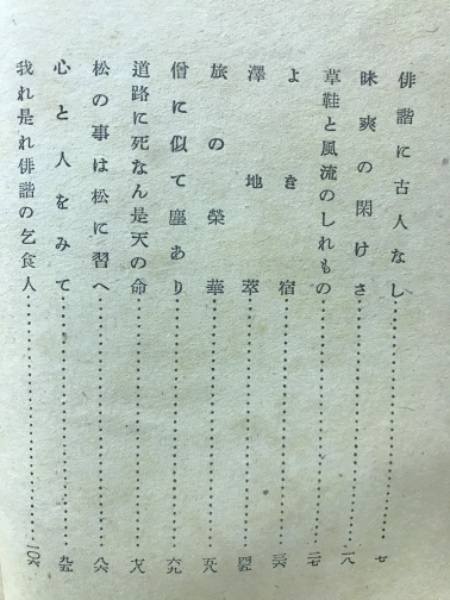 俳諧に古人なし……七
昧爽の閑けさ……一八
草鞋と風流のしれもの……二七
よき宿……三六
澤地萃……四五
旅の榮華……五八
僧に似て塵あり……六九
道路に死なん是天の命……七八
松の事は松に習へ……八六
心と人をみて……九五
我れ是れ俳諧の乞食人……一〇六